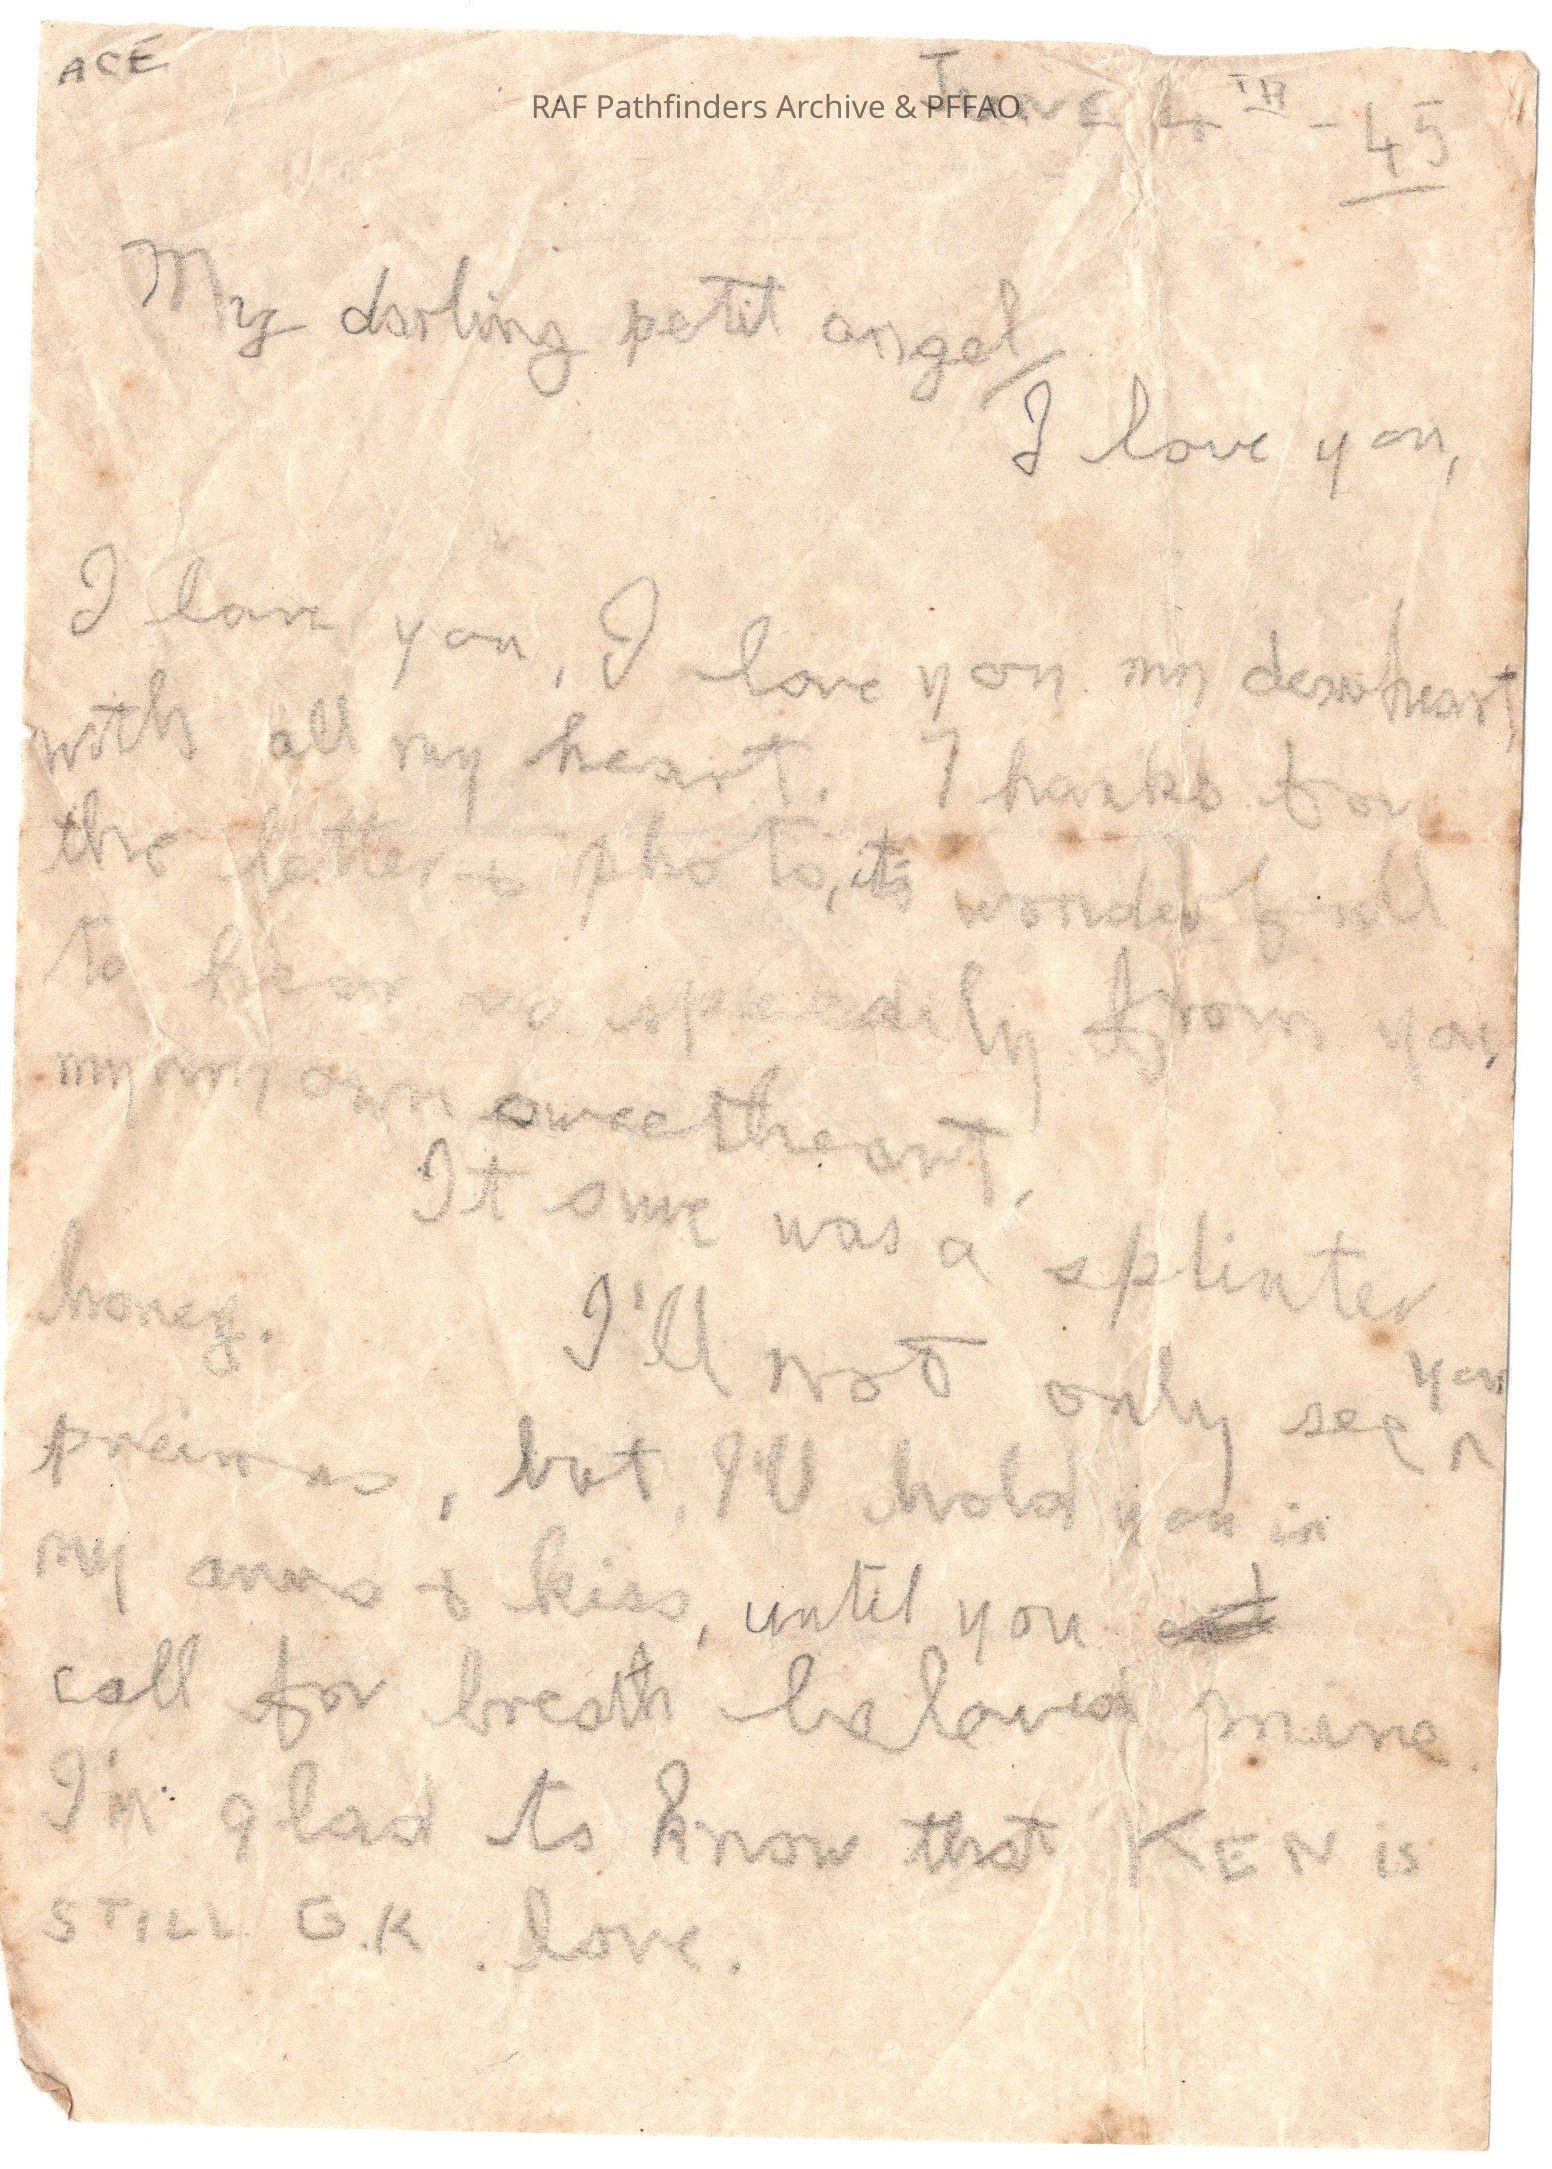 ACE
RAF Pathfinders Archive & PFFAO
June 4TH - 45
My darling petit angel,
I love you,
I love you, I love you my dearheart,
with all my heart. Thanks for
the letter & photo, it's wonderfull
to hear so speedily from you,
my own sweetheart.
It sure was a splinter
honey.
I'll not only see you
, but, I'll hold you in
my arms & kiss, until you
call for breath beloved mine.
I'm glad to know that KEN is
STILL O.K. love.